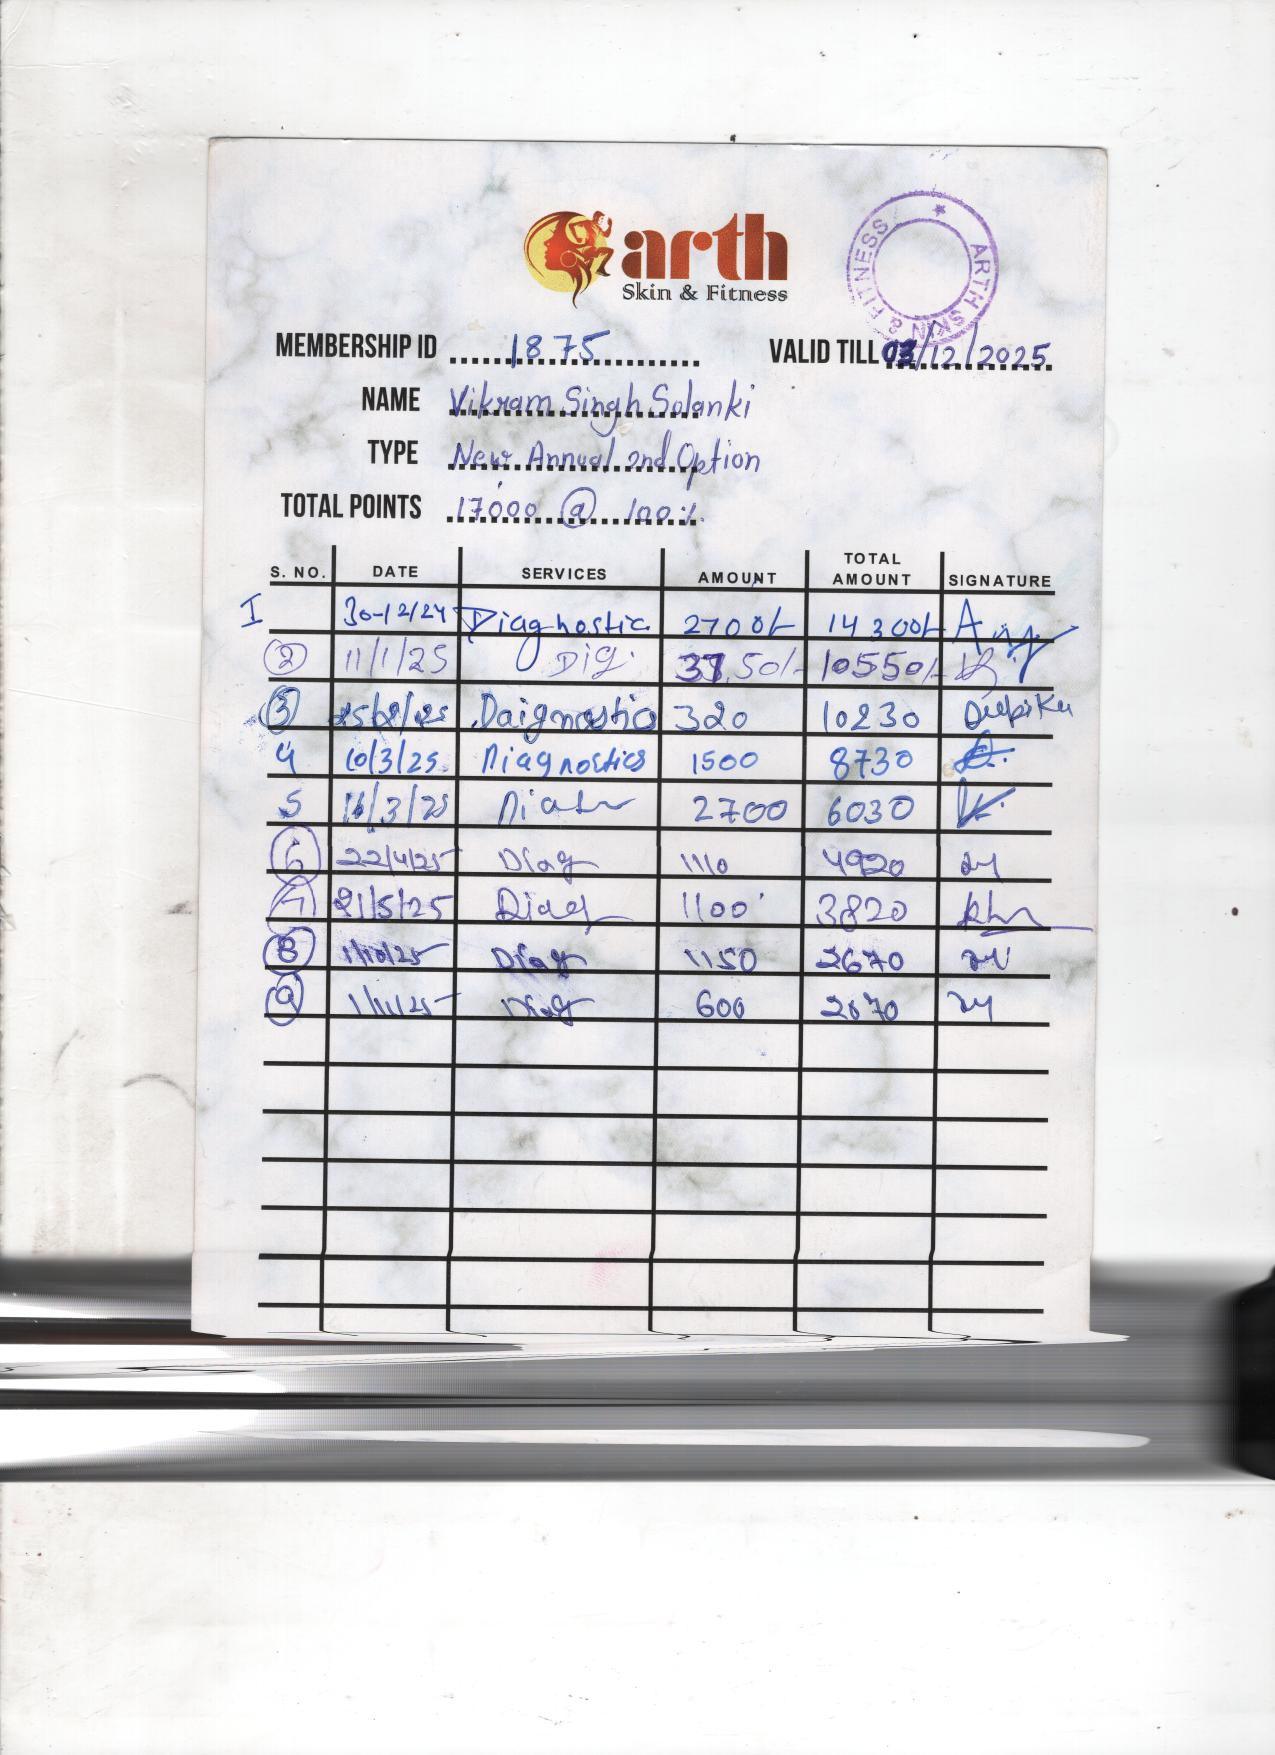 arth
Skin & Fitness
ARTH SKIN & FITNESS
MEMBERSHIP ID 1875 VALID TILL 03/12/2025
NAME Vikram Singh Solanki
TYPE New Annual 2nd Option
TOTAL POINTS 17000 @ 100%
S. NO. DATE SERVICES AMOUNT TOTAL AMOUNT SIGNATURE
I 30-12/24 Diagnostic 2700/- 14300/-
2 11/1/25 Dig. 3750/- 10550/-
3 25/2/25 Daignostics 320 10230 Deepika
4 10/3/25 Diagnostics 1500 8730
5 16/3/25 2700 6030
6 22/4/25 Diag 1110 4920
7 21/5/25 Diag 1100 3820
8 1/10/25 Diag 1150 2670
9 1/11/25 Diag 600 2070